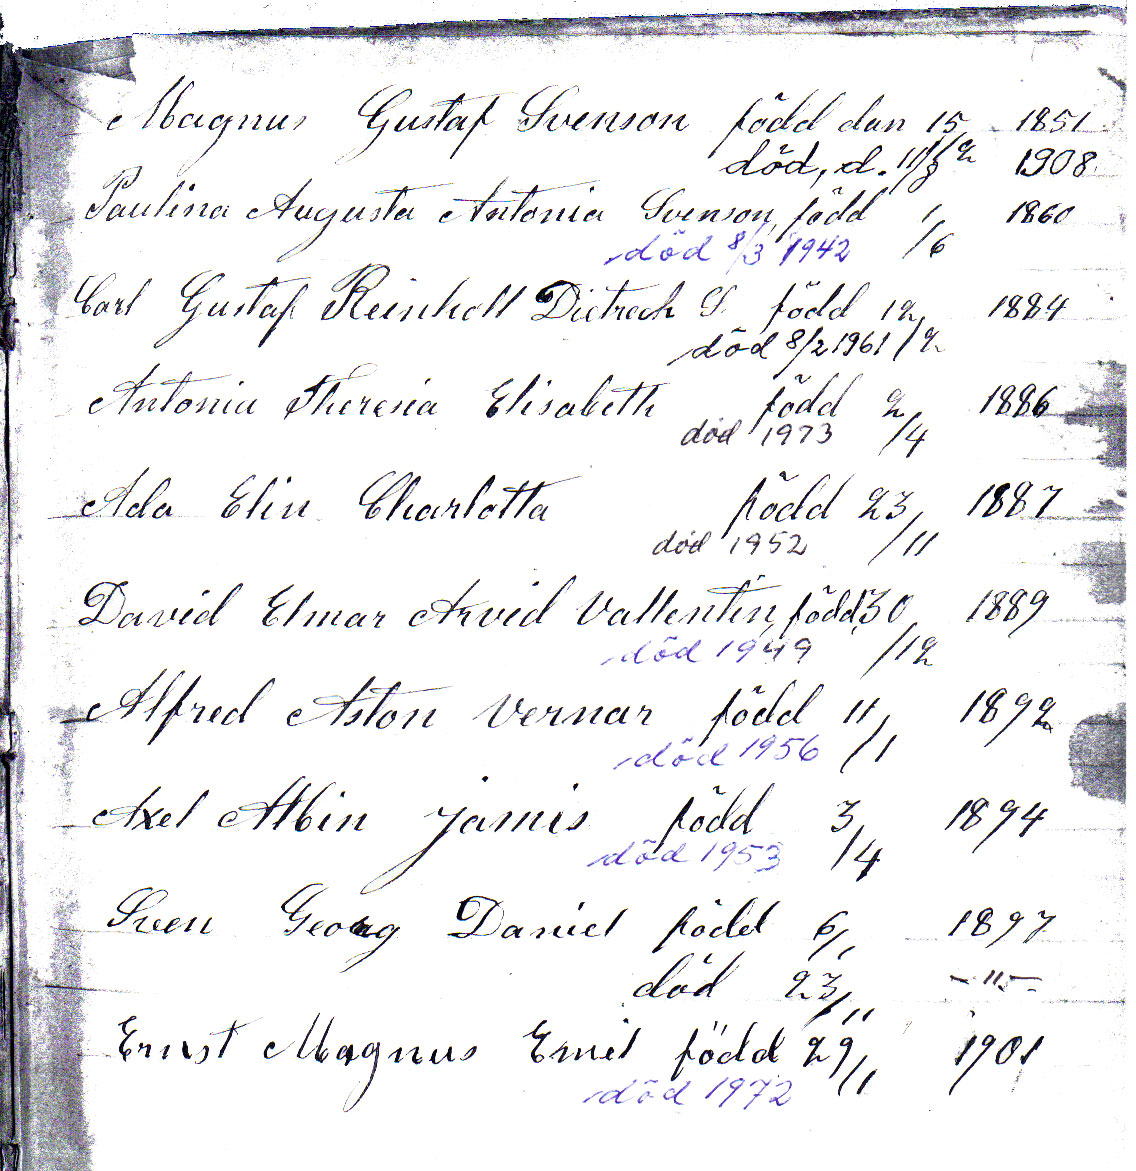 Magnus Gustaf Svenson född dan 15/12 1851
död, d. 11/8 1908
Paulina Augusta Antonia Svenson, född 1/6 1860
död 8/3 1942
Carl Gustaf Reinholt Dietrech S. född 12/2 1884
död 8/2 1961
Antonia Theresia Elisabeth född 2/4 1886
död 1973
Ada Elin Charlotta född 23/11 1887
död 1952
David Elmar Arvid Vallentin, född 30/12 1889
död 1949
Alfred Aston Vernar född 11/1 1892
död 1956
Axel Albin Jamis född 3/4 1894
död 1953
Sven Georg Daniel född 6/1 1897
död 23/11 -"-
Ernst Magnus Emil född 29/1 1901
död 1972